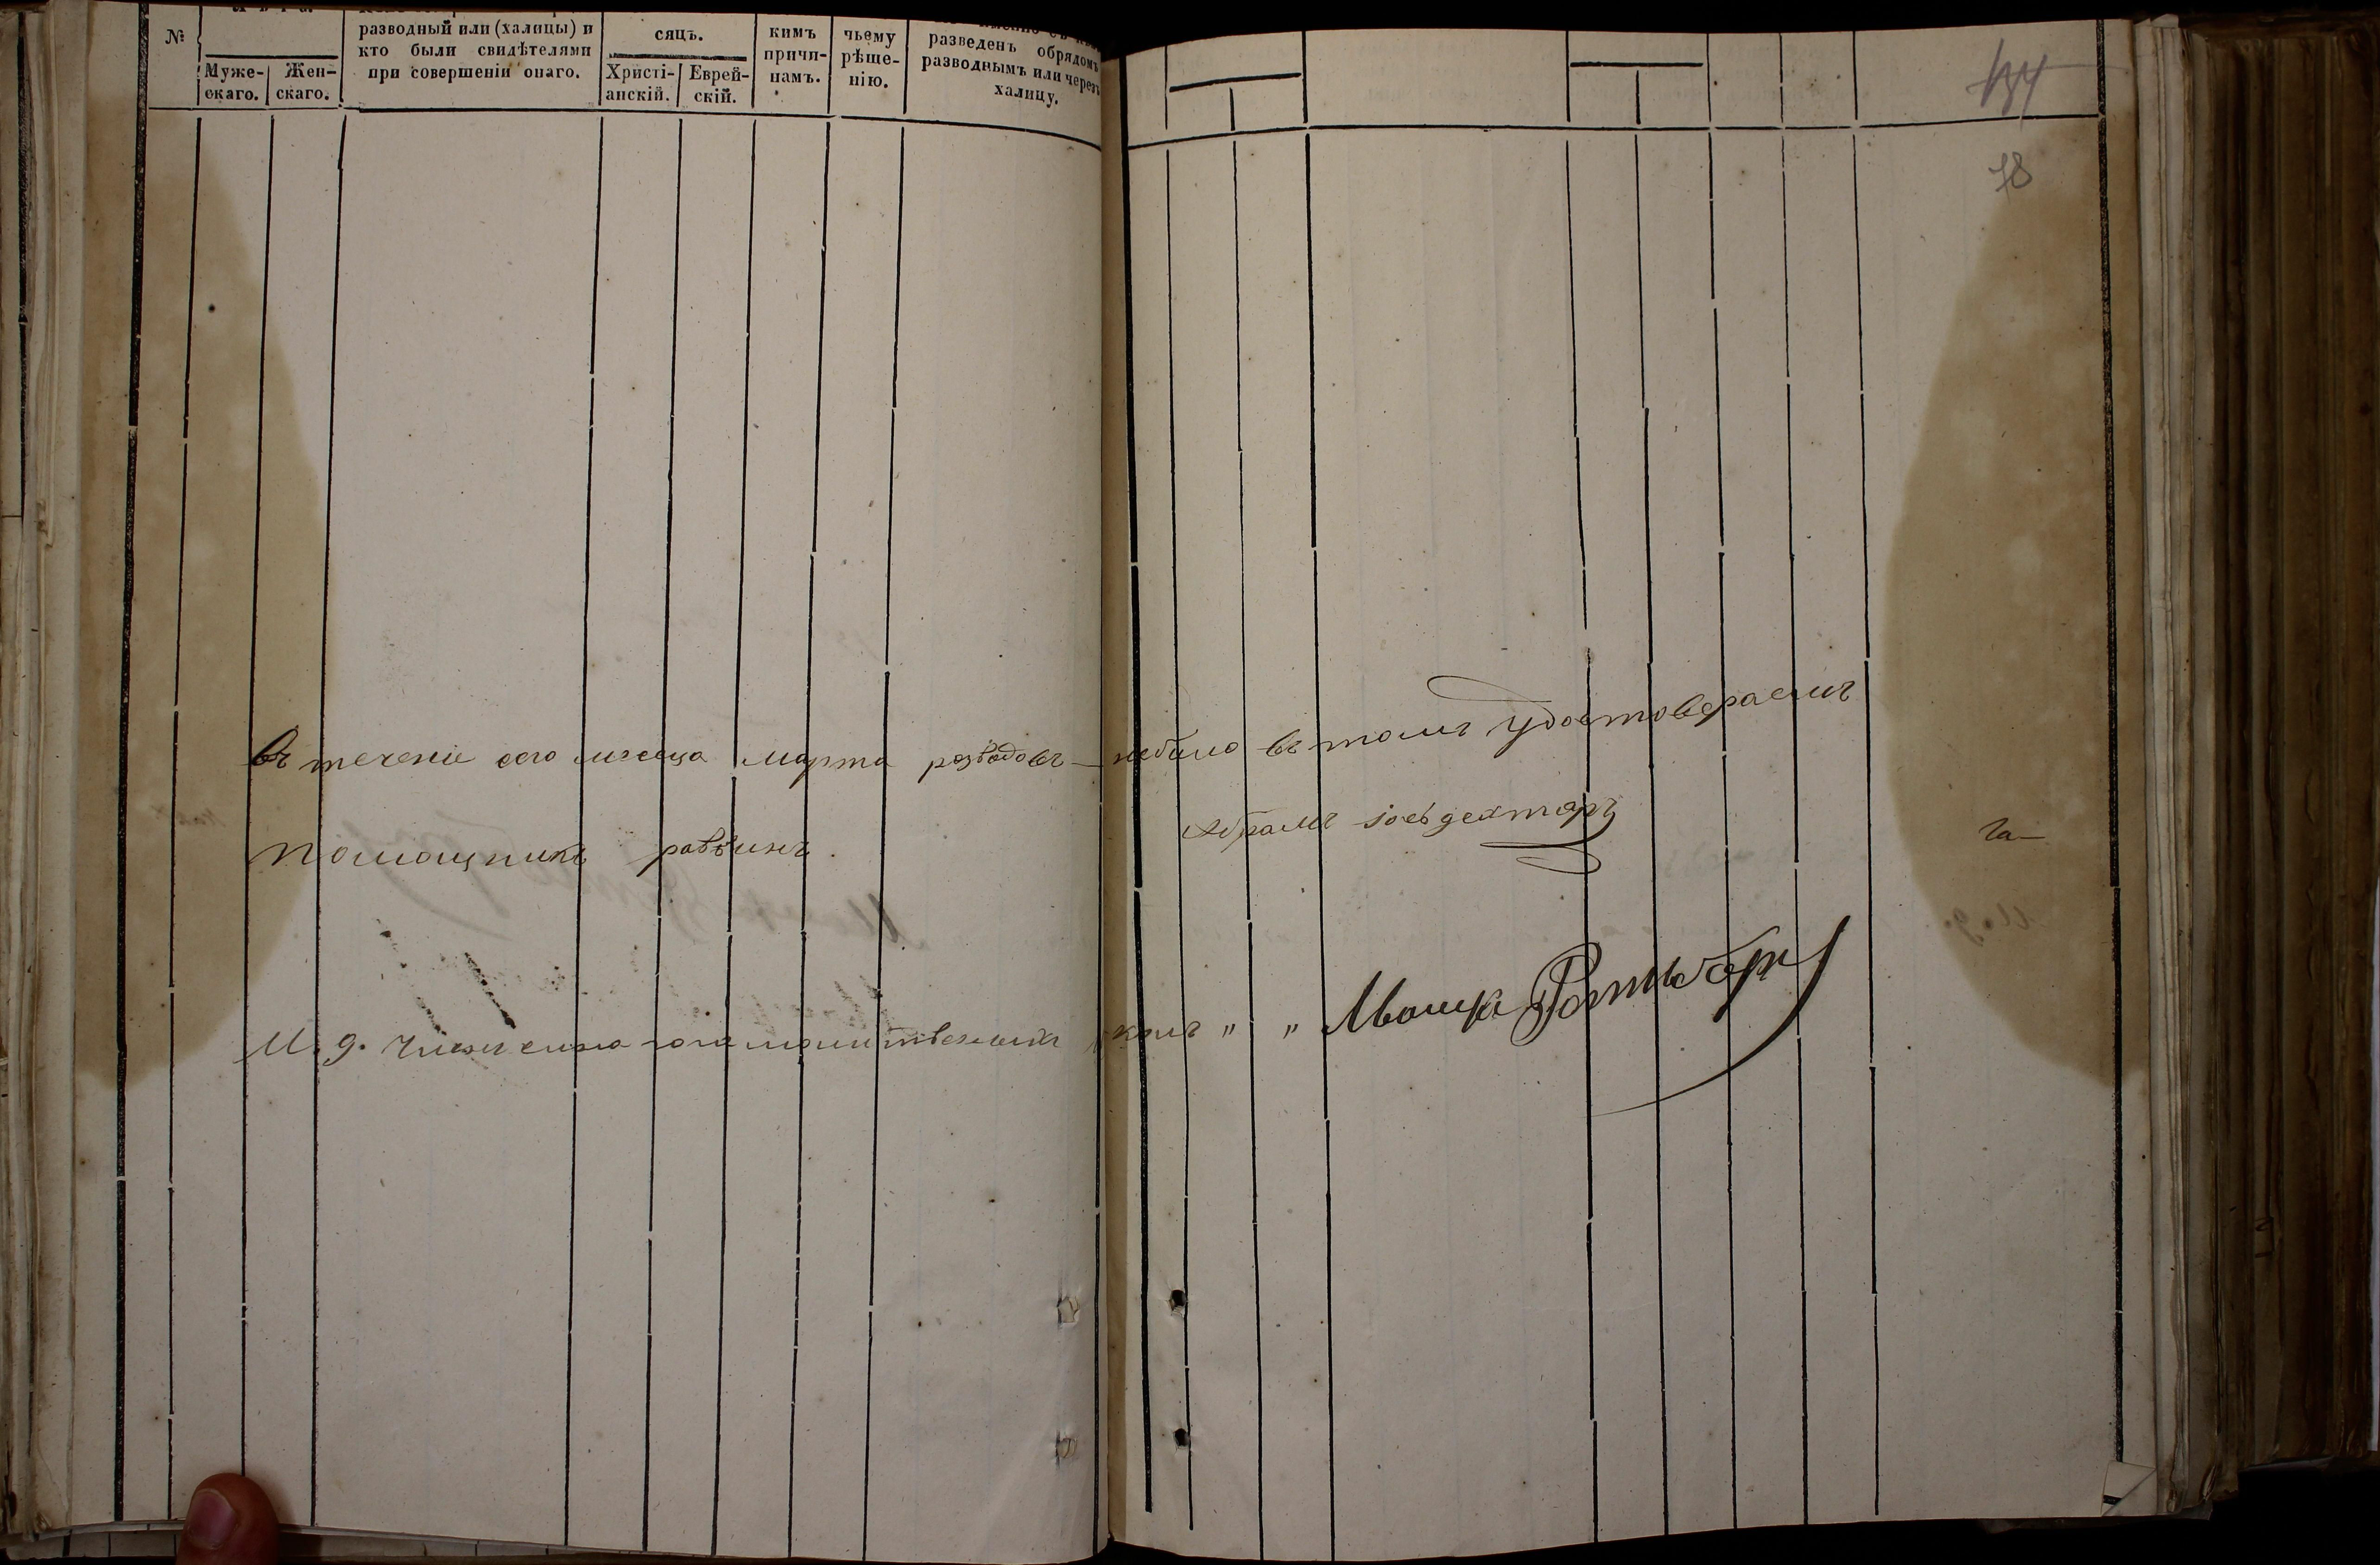 №
Муже-
скаго.
Жен-
скаго.
разводный или (халицы) и
кто были свидѣтелями
при совершеніи онаго.
сяцъ.
Христі-
анскій.
Еврей-
скій.
кимъ
причи-
намъ.
чьему
рѣше-
нію.
разведенъ обрядомъ
разводнымъ или черезъ
халицу.
78
въ течение сего месеца марта розводовъ небыло въ томъ удостовераемъ
Помощникъ раввинъ Абрамъ
И. д. Мошка Ротмберг